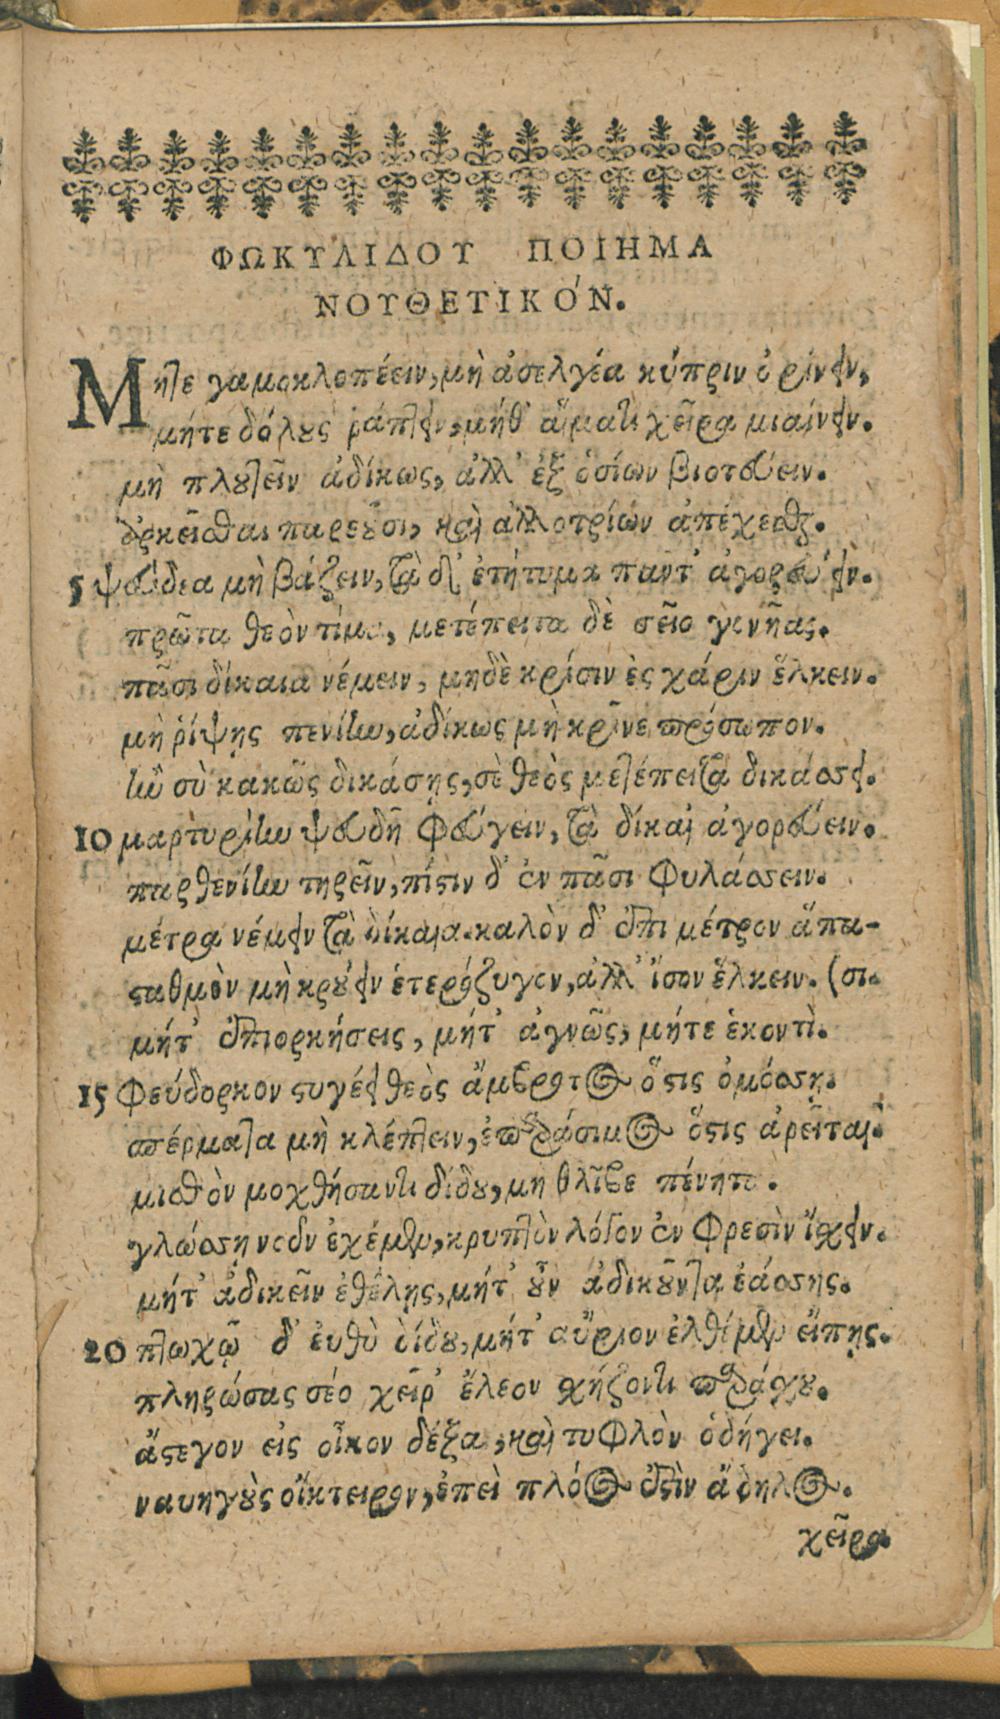 ΦΩΚΥΛΙΔΟΥ ΠΟΙΗΜΑ
ΝΟΥΘΕΤΙΚΟ'Ν.
Μήτε γαμοκλοπέειν, μὴ ἀσελγέα κύπριν ὀρίνειν,
μήτε δόλους ῥάπτειν, μήθ' αἵματι χεῖρα μιαίνειν.
μὴ πλουτεῖν ἀδίκως, ἀλλ' ἐξ ὁσίων βιοτεύειν.
ἀρκεῖσθαι παρεοῦσι, καὶ ἀλλοτρίων ἀπέχεσθαι.
5 ψεύδεα μὴ βάζειν, τὰ δ' ἐτήτυμα παντ' ἀγορεύειν.
πρῶτα θεὸν τίμα, μετέπειτα δὲ σεῖο γονῆας.
πᾶσι δίκαια νέμειν, μηδὲ κρίσιν ἐς χάριν ἕλκειν.
μὴ ῥίψῃς πενίην, ἀδίκως μὴ κρῖνε πρόσωπον.
ἢν σὺ κακῶς δικάσῃς, σὲ θεὸς μετέπειτα δικάσσει.
10 μαρτυρίην ψευδῆ φεύγειν, τὰ δίκαι' ἀγορεύειν.
παρθενίην τηρεῖν, πίστιν δ' ἐν πᾶσι φυλάσσειν.
μέτρα νέμειν τὰ δίκαια. καλὸν δ' ἐπι μέτρον ἅπα-
σταθμὸν μὴ κρούειν ἑτερόζυγον, ἀλλ' ἴσον ἕλκειν. (σι.
μήτ' ἐπιορκήσεις, μήτ' ἀγνῶς, μήτε ἑκοντὶ.
15 Φεύδορκον στυγέει θεὸς ἄμβροτος ὅστις ὀμόσσῃ.
σπέρματα μὴ κλέπτειν, ἐπαράσιμος ὅστις ἀρεῖται.
μισθὸν μοχθήσαντι δίδου, μὴ θλῖβε πένητα.
γλώσσῃ νοῦν ἐχέμεν, κρυπτὸν λόγον ἐν φρεσὶν ἴσχειν.
μήτ' ἀδικεῖν ἐθέλῃς, μήτ' οὖν ἀδικοῦντα ἐάσσῃς.
20 πτωχῷ δ' ἐυθὺ δίδου, μήτ' αὔριον ἐλθέμεν εἴπῃς.
πληρώσας σέο χεῖρ' ἔλεον χρήζοντι παράσχου.
ἄστεγον εἰς οἶκον δέξαι, καὶ τυφλὸν ὁδήγει.
ναυηγοὺς οἴκτειρον, ἐπεὶ πλόος ἐστὶν ἄδηλος.
χεῖρα